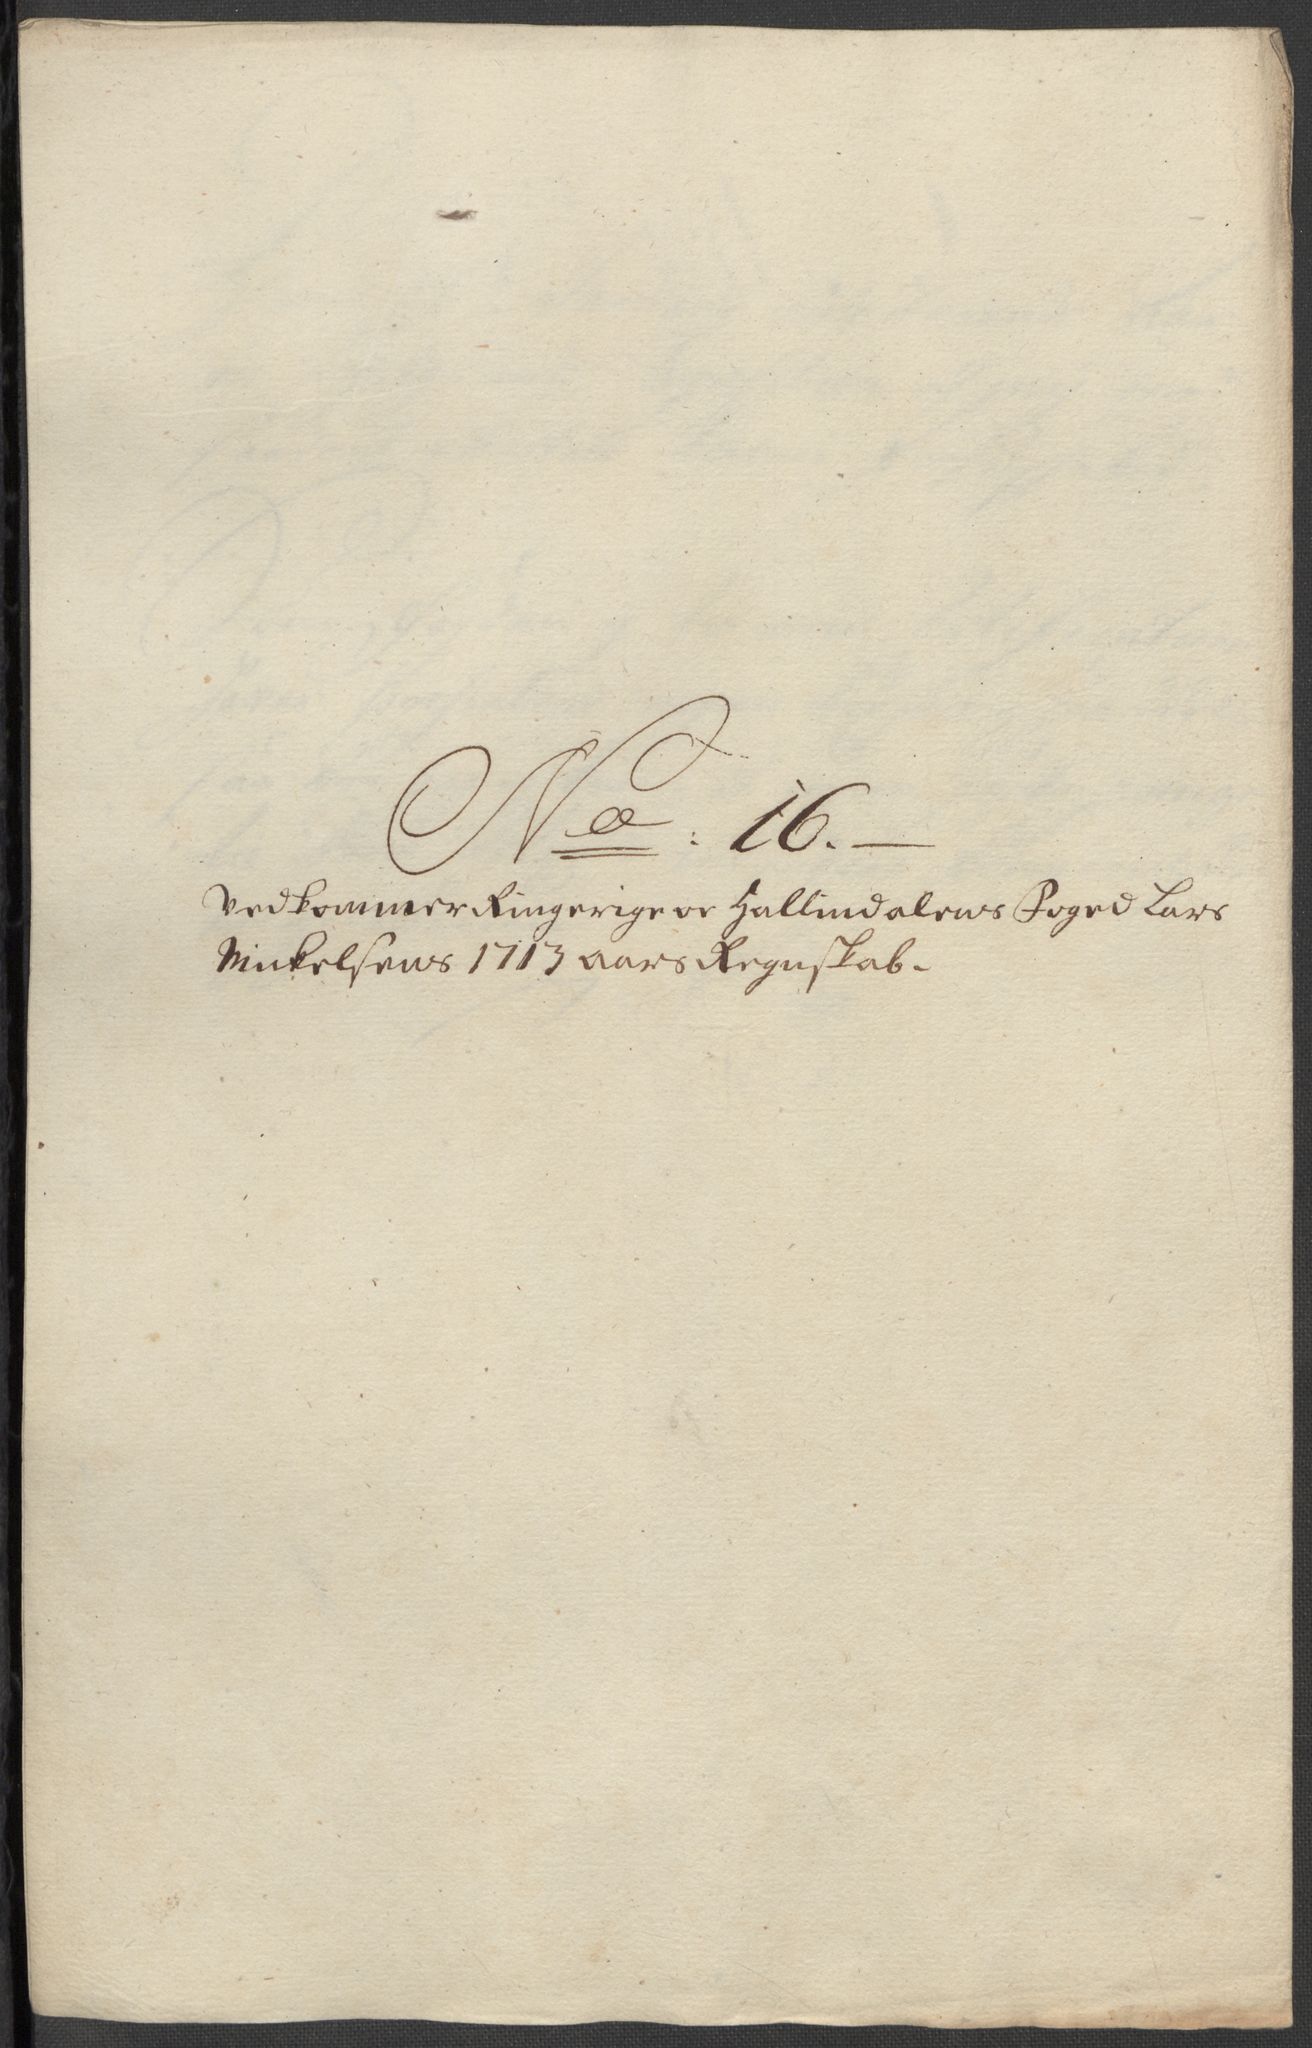 No: 16. —
Vedkommer Ringerige oc Hallindalens Foged Lars
Mickelsens 1713 aars Regnskab.